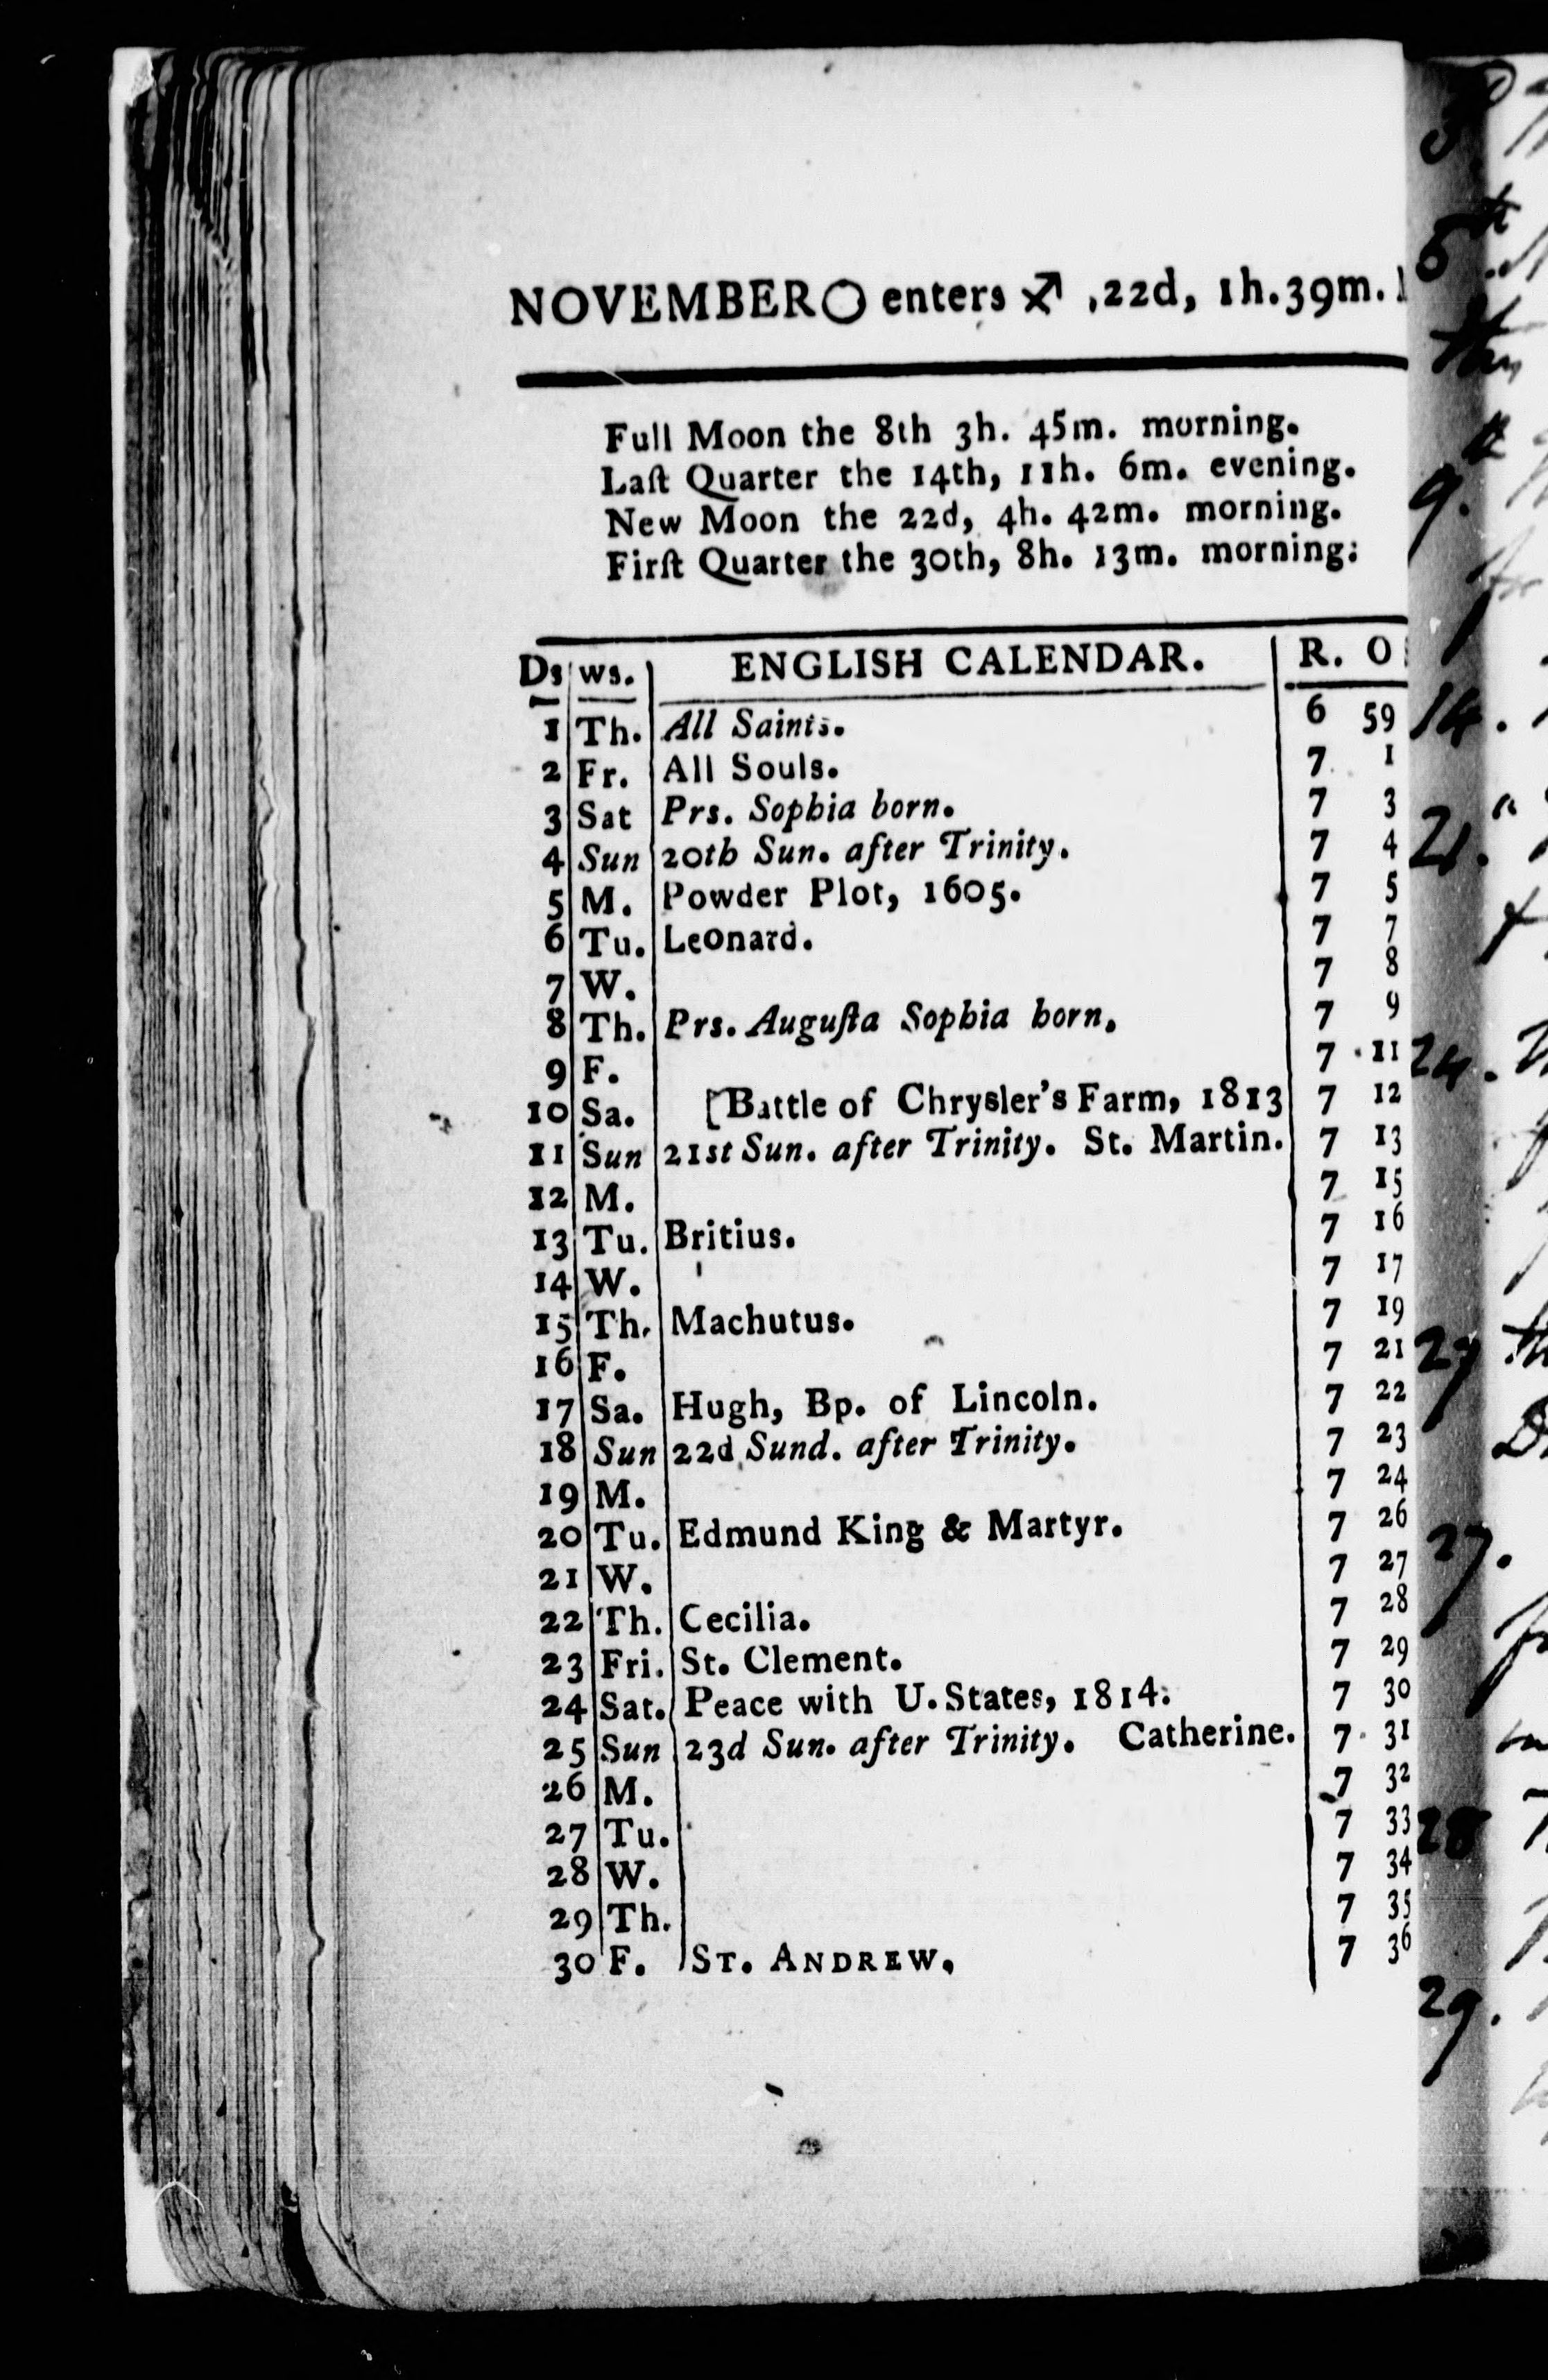 NOVEMBER ○ enters ♐ ,22d, 1h.39m.
Full Moon the 8th 3h. 45m. morning.
Laſt Quarter the 14th, 11h. 6m. evening.
New Moon the 22d, 4h. 42m. morning.
Firſt Quarter the 30th, 8h. 13m. morning:
Ds ws. ENGLISH CALENDAR. R. O
1 Th. All Saints. 6 59
2 Fr. All Souls. 7 1
3 Sat Prs. Sophia born. 7 3
4 Sun 20th Sun. after Trinity. 7 4
5 M. Powder Plot, 1605. 7 5
6 Tu. Leonard. 7 7
7 W. 7 8
8 Th. Prs. Auguſta Sophia born. 7 9
9 F. 7 11
10 Sa. [Battle of Chrysler's Farm, 1813 7 12
11 Sun 21st Sun. after Trinity. St. Martin. 7 13
12 M. 7 15
13 Tu. Britius. 7 16
14 W. 7 17
15 Th. Machutus. 7 19
16 F. 7 21
17 Sa. Hugh, Bp. of Lincoln. 7 22
18 Sun 22d Sund. after Trinity. 7 23
19 M. 7 24
20 Tu. Edmund King & Martyr. 7 26
21 W. 7 27
22 Th. Cecilia. 7 28
23 Fri. St. Clement. 7 29
24 Sat. Peace with U. States, 1814. 7 30
25 Sun 23d Sun. after Trinity. Catherine. 7 31
26 M. 7 32
27 Tu. 7 33
28 W. 7 34
29 Th. 7 35
30 F. ST. ANDREW. 7 36
9.
14.
21.
24.
27
27.
28
29.